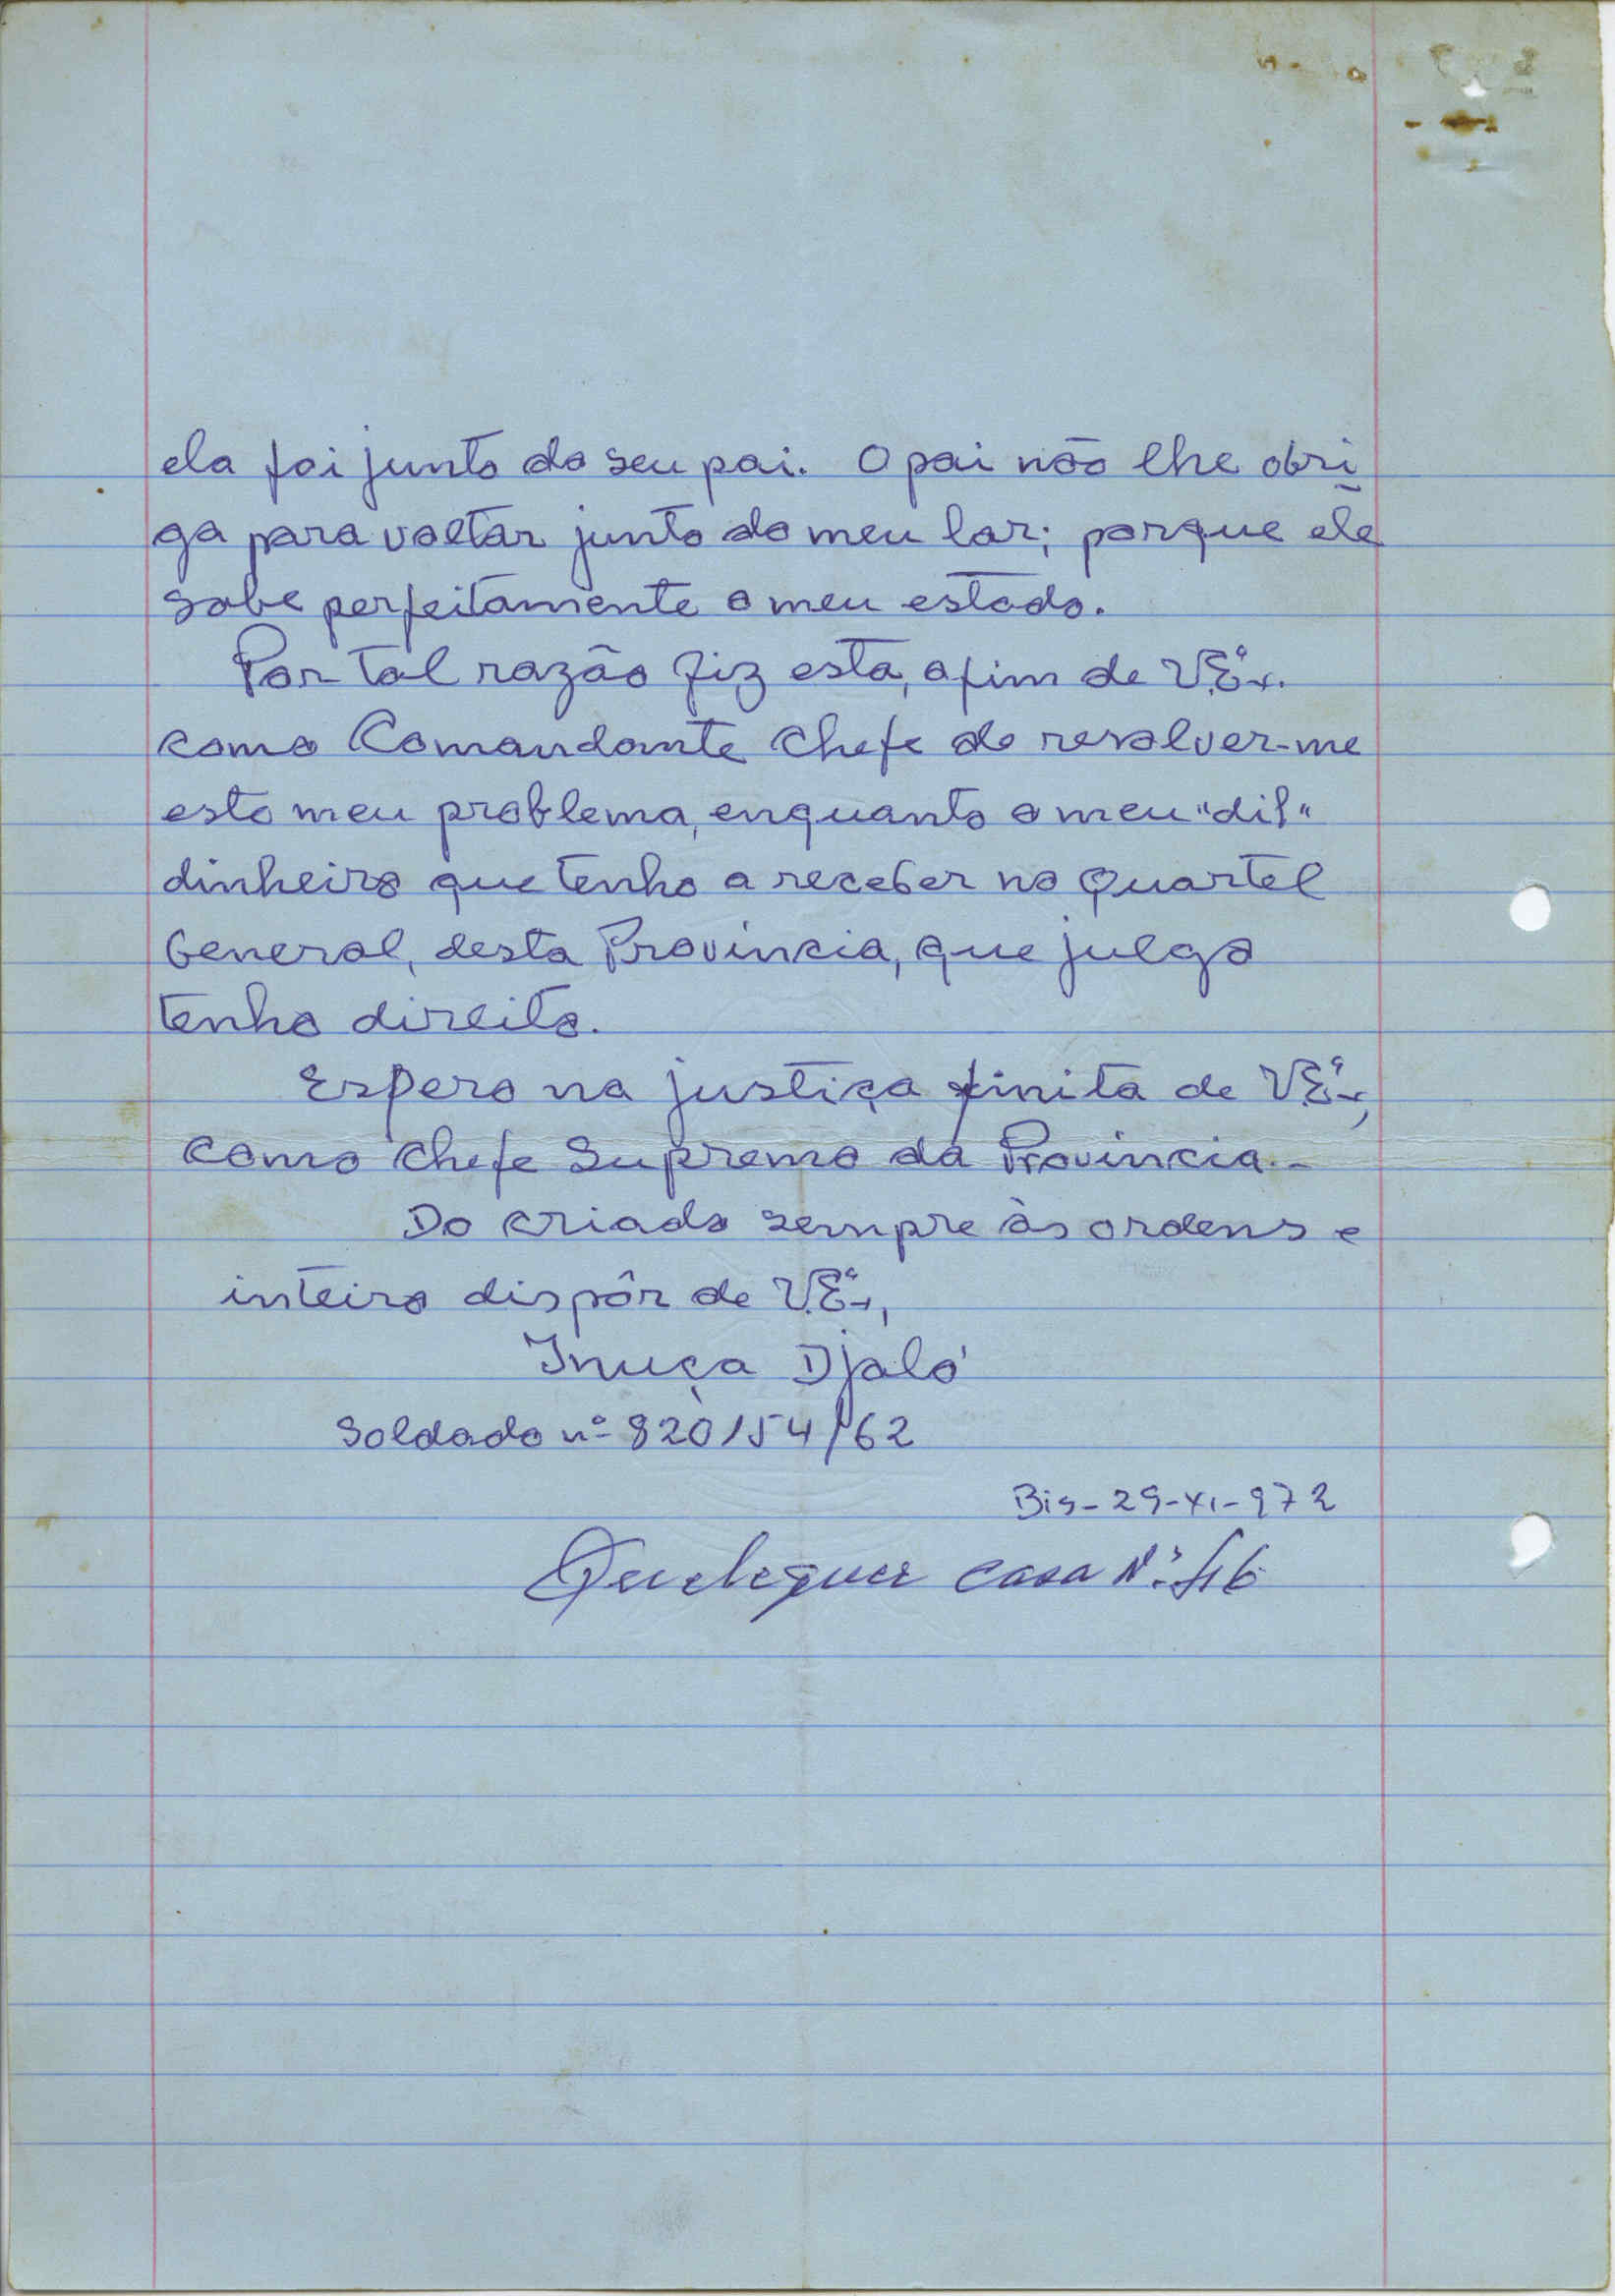 ela foi junto do seu pai. O pai não lhe obri
ga para voltar junto do meu lar; porque ele
sabe perfeitamente o meu estado.
Por tal razão fiz esta, afim de V.Exª.
como Comandante Chefe de resolver-me
esto meu problema, enquanto o meu "dif"
dinheiro que tenho a receber no Quartel
General, desta Provincia, que julgo
tenho direito.
Espero na justiça finita de V.Exª,
como Chefe Supremo da Provincia.-
Do criado sempre às ordens e
inteiro dispôr de V.Exª,
Inuça Djaló
Soldado nº 820/54/62
Bis- 29-XI-972
casa Nº